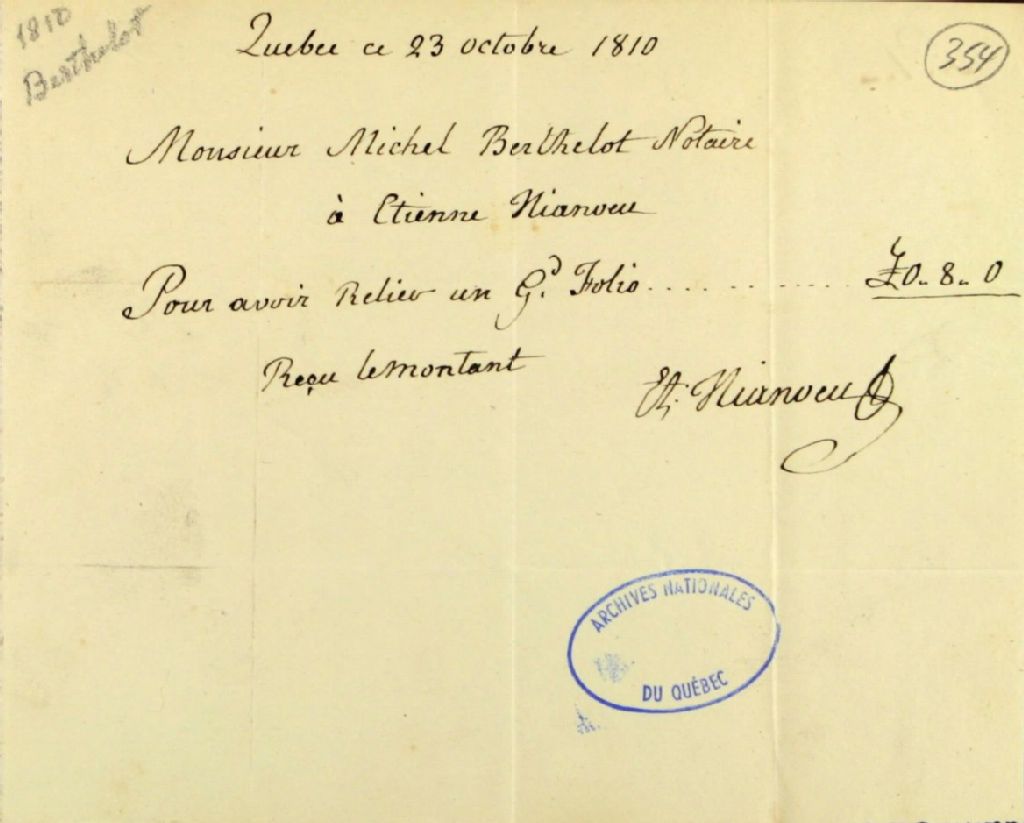 1810
Berthelot
354
Quebec ce 23 octobre 1810
Monsieur Michel Berthelot Notaire
à Etienne Nianveu
Pour avoir Relier un G.d Folio ............ £0. 8. 0
Reçu le montant
Et. Nianveu
ARCHIVES NATIONALES
DU QUÉBEC